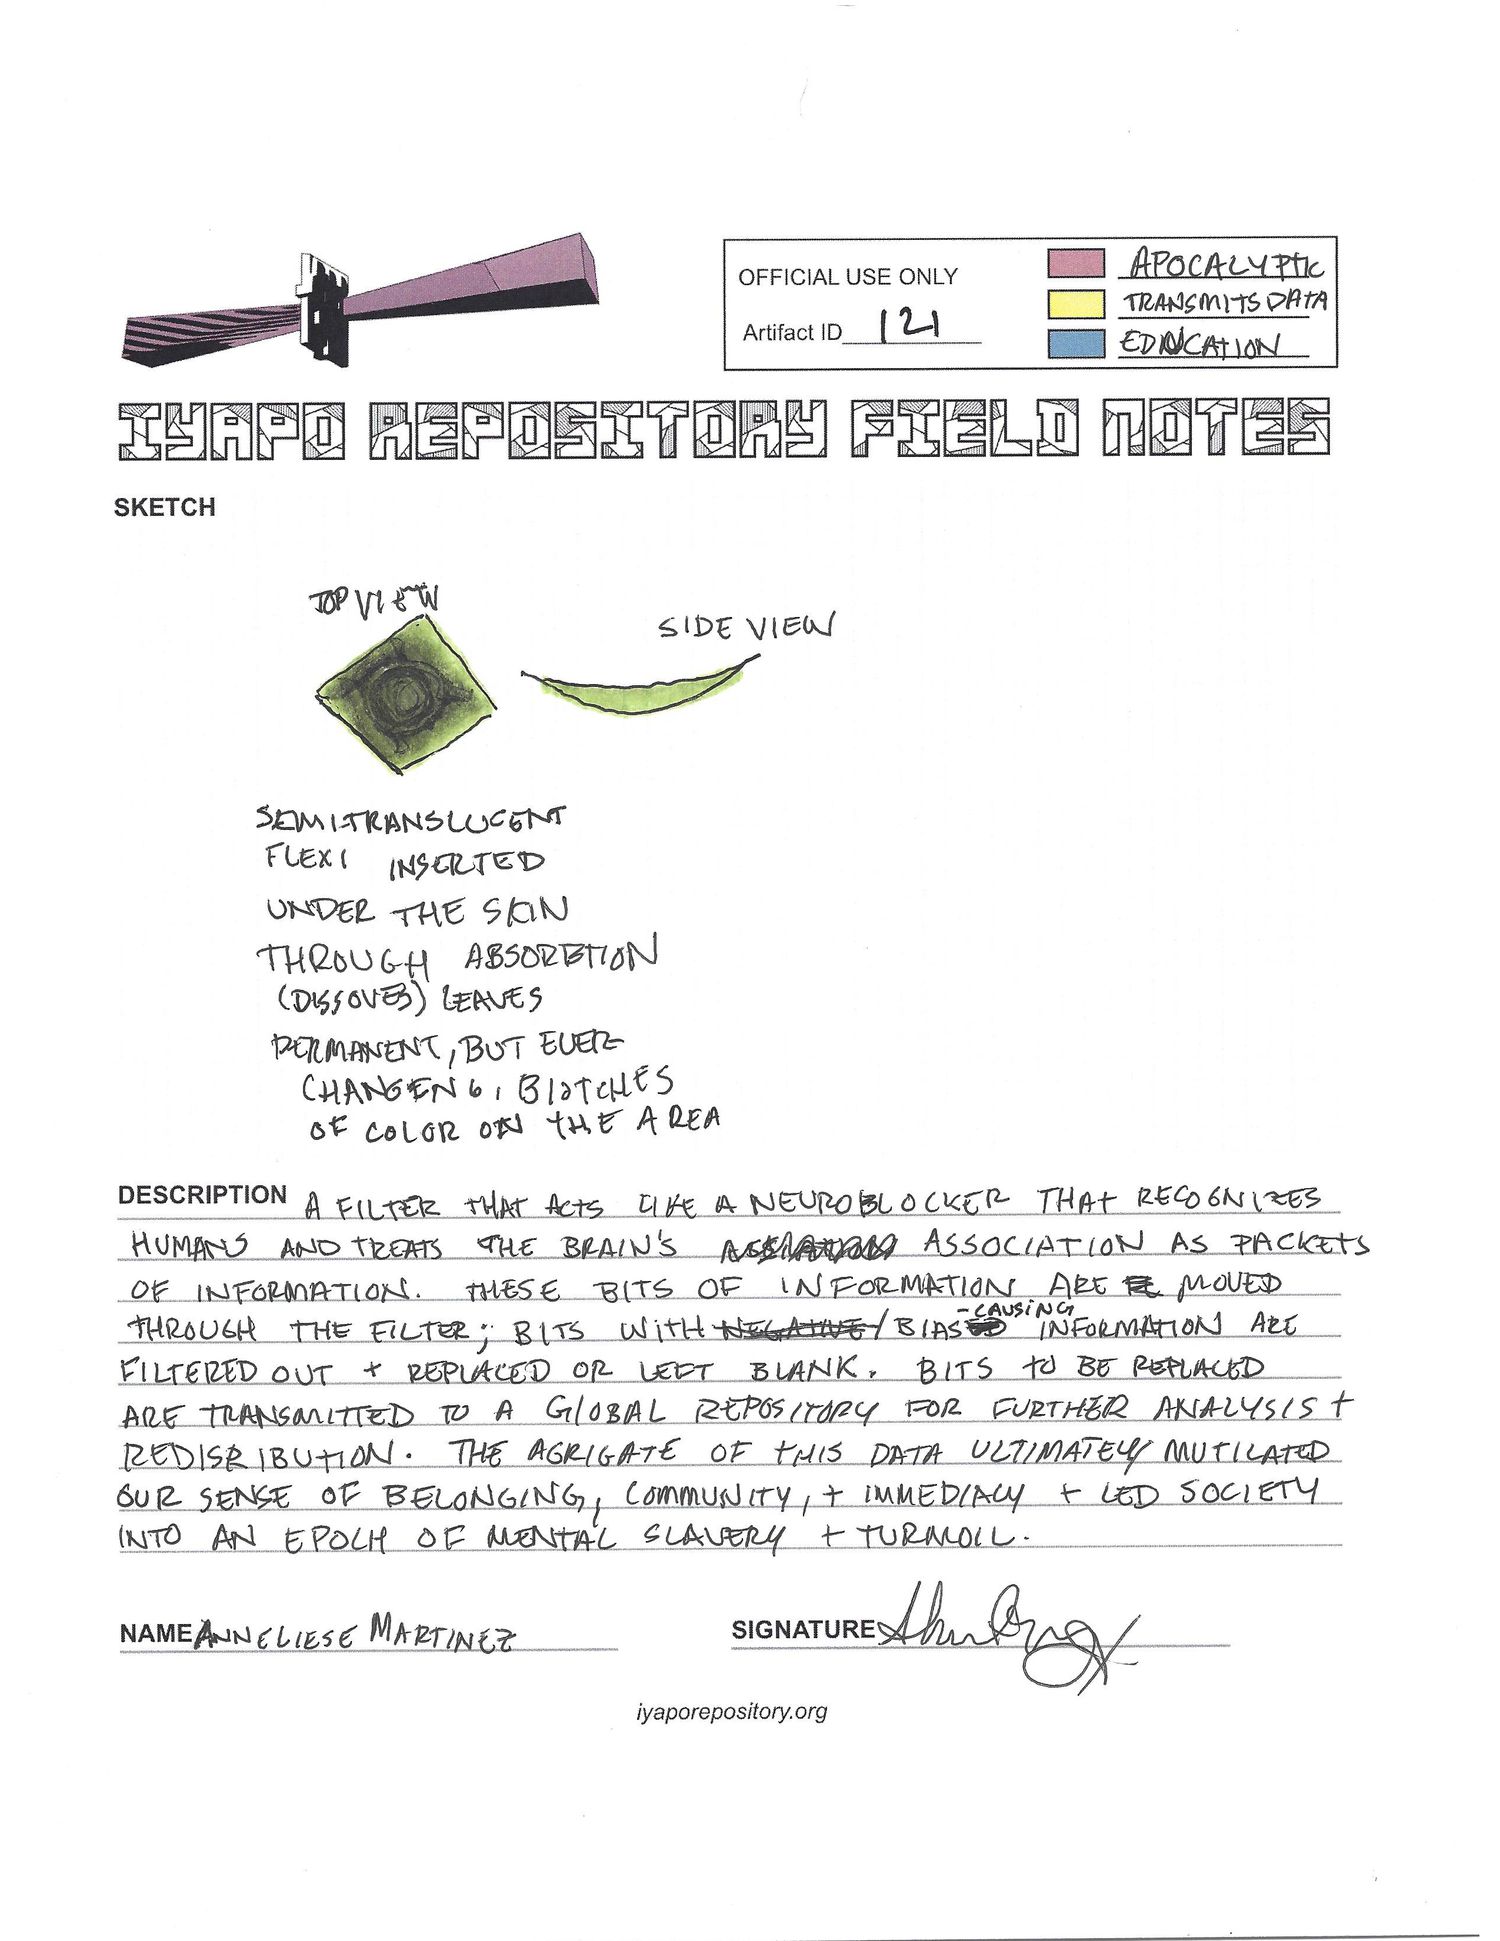 OFFICIAL USE ONLY
Artifact ID 121
APOCALYPTIC
TRANSMITS DATA
EDUCATION
IYAPO REPOSITORY FIELD NOTES
SKETCH
TOP VIEW
SIDE VIEW
SEMITRANSLUCENT
FLEXI INSERTED
UNDER THE SKIN
THROUGH ABSORBTION
(DISSOVES) LEAVES
PERMANENT, BUT EVER
CHANGENG, BLOTCHES
OF COLOR ON THE AREA
DESCRIPTION A FILTER THAT ACTS LIKE A NEUROBLOCKER THAT RECOGNIZES
HUMANS AND TREATS THE BRAIN'S ASSOCIATION AS PACKETS
OF INFORMATION. THESE BITS OF INFORMATION ARE MOVED
THROUGH THE FILTER; BITS WITH NEGATIVE/BIAS-CAUSING INFORMATION ARE
FILTERED OUT + REPLACED OR LEFT BLANK. BITS TO BE REPLACED
ARE TRANSMITTED TO A GLOBAL REPOSITORY FOR FURTHER ANALYSIS +
REDISRIBUTION. THE AGRIGATE OF THIS DATA ULTIMATELY MUTILATED
OUR SENSE OF BELONGING, COMMUNITY, + IMMEDIACY + LED SOCIETY
INTO AN EPOCH OF MENTAL SLAVERY + TURMOIL.
NAME ANNELIESE MARTINEZ
SIGNATURE
iyaporepository.org